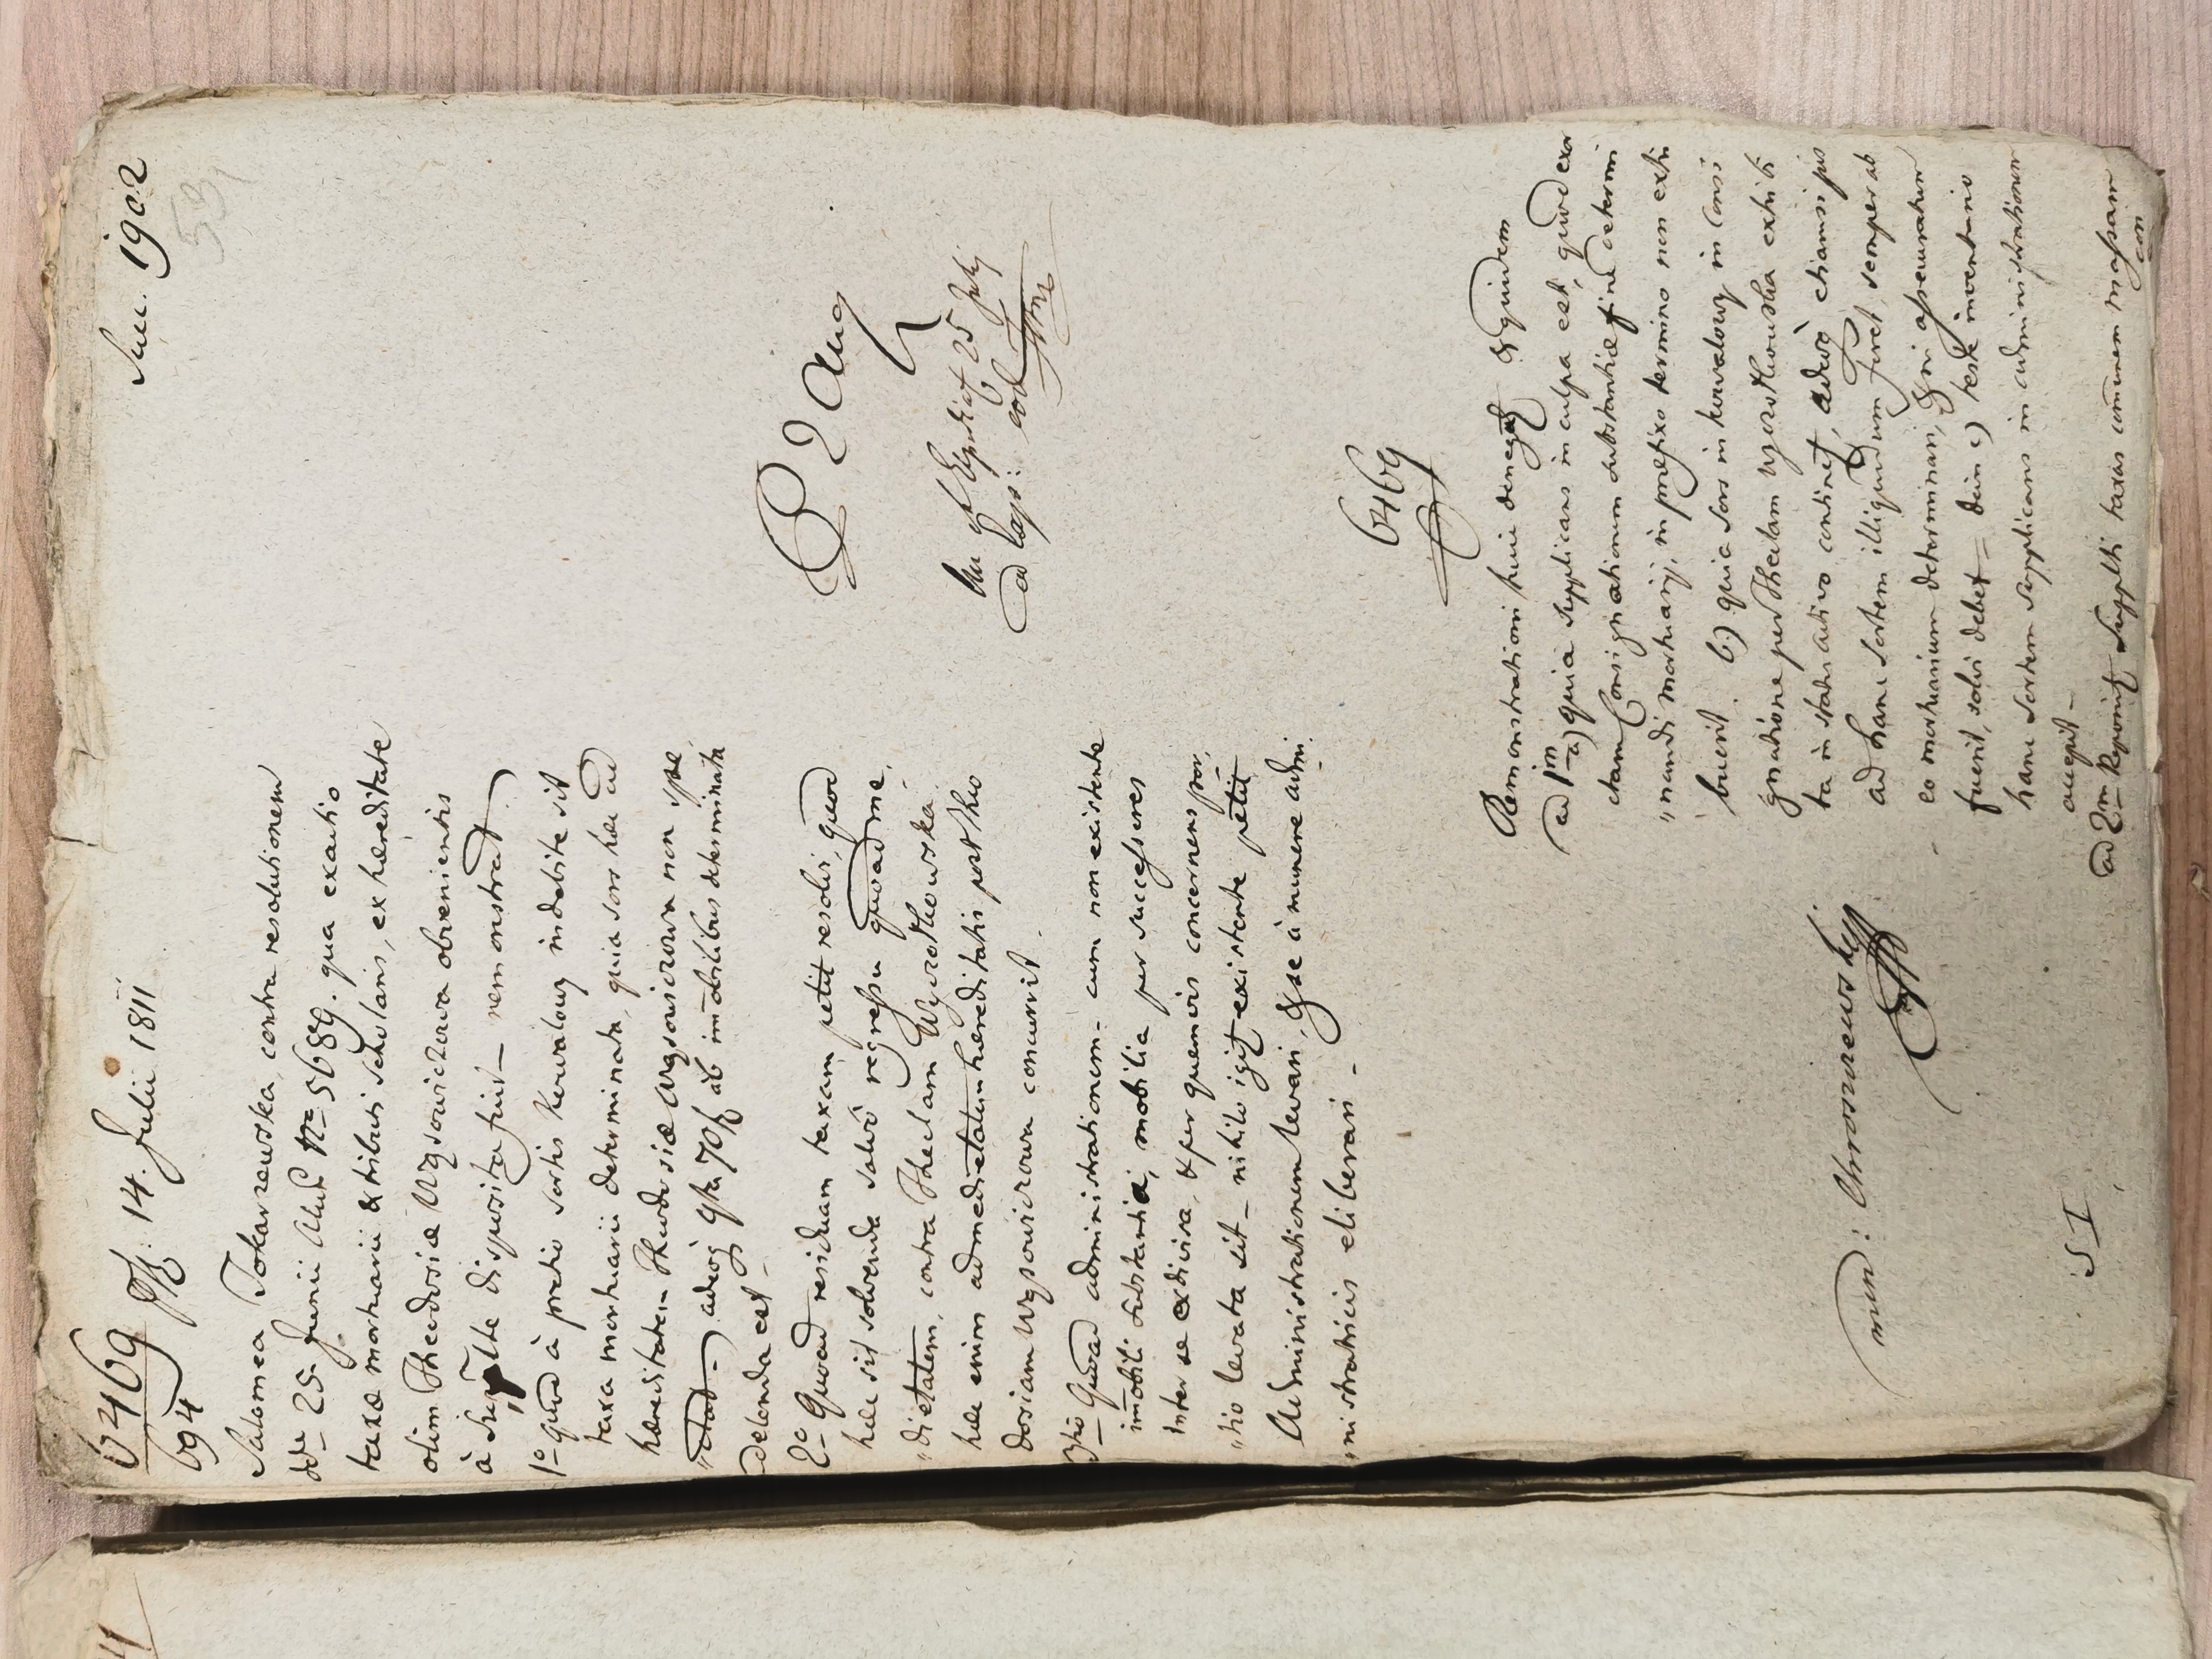 6469 pst: 14. Julii 1811
694
Succ. 1902
531
Salomea Tokarzewska, contra resolutionem
dtte 25. Junii N= 5689. qua exactio
taxæ mortuarii & tributi scholaris, ex hæreditate
olim Theodosiæ Wysowiczowa obvenientis
à disposita fuit – remonstrat.
1° quod à pretio sortis Kurvalowy indebite sit
taxa mortuarii determinata, quia sors hæc ad
hæreditatem Theodosiæ Wysowiczowa non spe,
"ctat –, adeoq 70 ab immobilibus determinata
delenda est –
2° Quoad residuam taxam, petit resolvi, quod
hæc sit solvenda salvô regressu quoad me,
"dietatem, contra Theclam Wyrzotkowska.
hæc enim ad medietatem hæreditatis post Theo
dosiam Wysowiczowa concurrit.
3tio Quoad administrationem – cum non existente
immobili substantia, mobilia per successores
inter se exdivisa, & per quemvis concernens por,
"tio levata sit – nihilo igit existente petit
Administrationem levari, & se à munere admi
"nistratricis eliberari –
P 2 Aug
25 July
6469
Remonstrationi huic denegat siquidem
ad 1m a) quia supplicans in culpa est, quod exa
ctam Consignationem substantiæ fine determi
"nandi mortuarij, in præfixo termino non exhi
"buerit. b) quia sors in Kurvalowy in Consi
gnatione per Theclam Wyzotkowska exhibi
ta in statu activo continet, adeoq etiamsi jus
ad hanc sortem illiquidum foret, semper ab
eo mortuarium determinari, & ni assecuratum
fuerit, solvi debet – dein c) teste inventario
hanc sortem supplicans in administrationem
accepit –
ad 2m Reponit suppllti taxas communem massam
con
mund: Chroszczewsky
S I